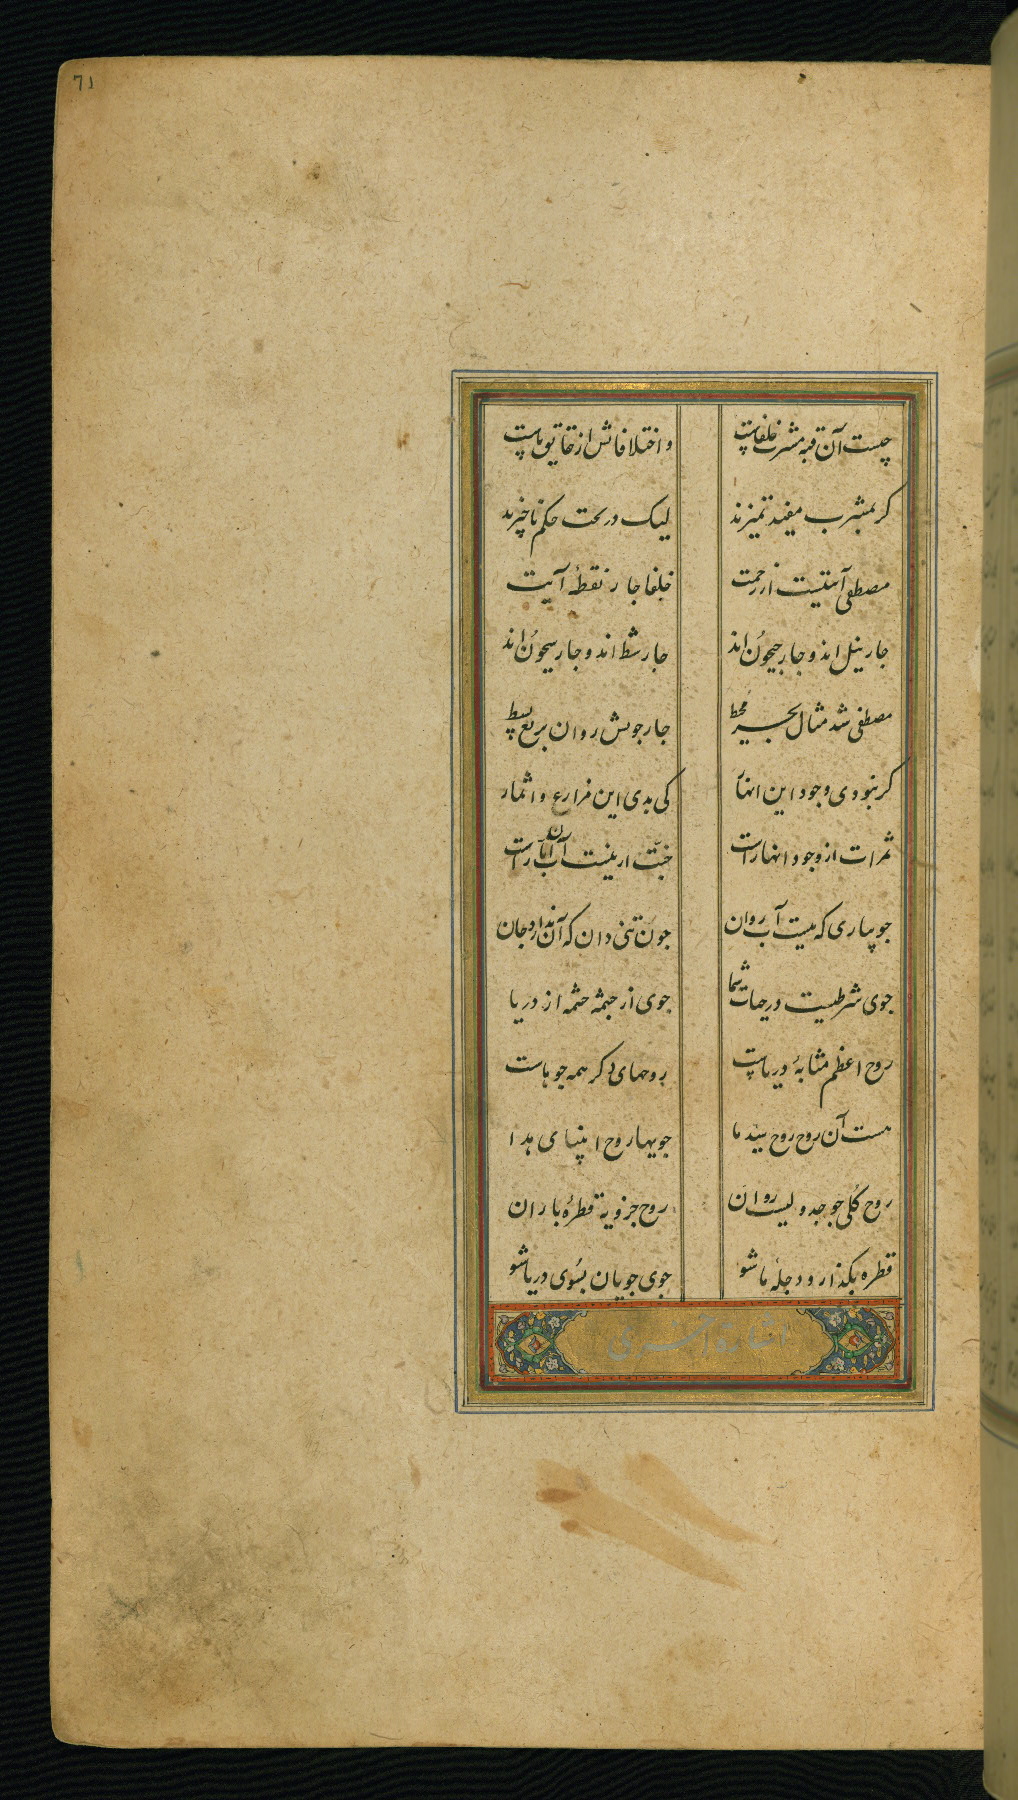 71
چیست آن قبه مشرب خلفاست و اختلافاتش از حقایق ماست
کر بمشرب مفید تمیزند لیک در تحت حکم ناچیزند
مصطفی آیتیست از رحمت خلفا چار نقطهٔ آیت
چار نیل اند و چار جیحون اند چار شط اند و چار سیحون اند
مصطفی شد مثال بحر محیط چار جویش روان بربع بسیط
کر نبودی وجود این انهار کی بدی این مزارع و اثمار
ثمرات از وجود انهار است
جویباری که نیست آب روان چون تنی دان که آن ندارد جان
جوی شرطیست در حیات شما جوی از چشمه چشمه از دریا
روح اعظم مثابهٔ دریاست روحهای دکر همه جوهاست
هست آن روح روح سید ما جویها روح انبیای هدا
روح کلی چو جدولیست روان روح جزویه قطرهٔ باران
قطره بکذار و دجلهٔ ما شو جوی جویان بسوی دریا شو
اشارة اخری